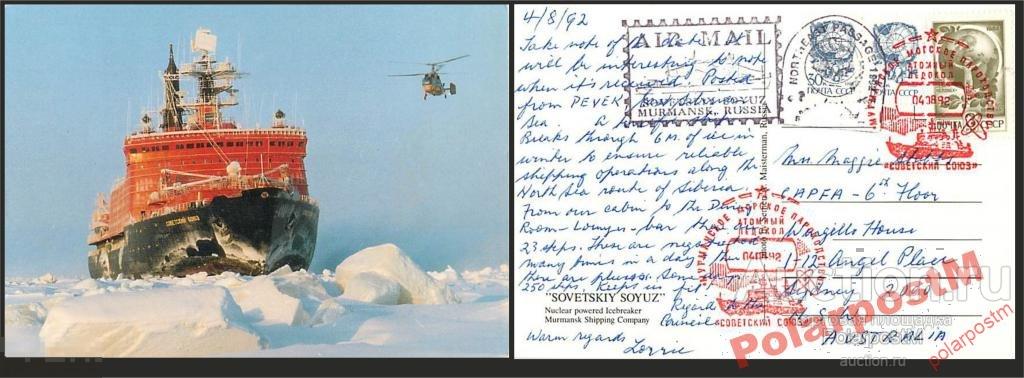 СОВЕТСКИЙ СОЮЗ
4/8/92
Take note of the date. It
will be interesting to note
when it's received. Posted
from PEVEK
Sea. A
Breaks through 6 M. of ice in
winter to ensure reliable
shipping operations along the
North Sea route of Siberia.
From our cabin to the Dining
Room - Lounge - bar there are
23 steps. These are negotiated
many times in a day. Then
there are plus
250 steps. Keeps us fit.
Regards to the
Council.
Warm regards
Lorrie
AIR MAIL
SOVETSKIY SOYUZ
MURMANSK, RUSSIA
NORTH-EAST PASSAGE
ПОЧТА СССР
ПОЧТА СССР
ПОЧТА СССР
МУРМАНСКОЕ МОРСКОЕ ПАРОХОДСТВО
АТОМНЫЙ
ЛЕДОКОЛ
040892
"СОВЕТСКИЙ СОЮЗ"
МУРМАНСКОЕ МОРСКОЕ ПАРОХОДСТВО
АТОМНЫЙ
ЛЕДОКОЛ
040892
"СОВЕТСКИЙ СОЮЗ"
Mrs Maggie
CAPFA - 6th Floor
House
1-12 Angel Place
Sydney
N.S.W.
AUSTRALIA
"SOVETSKIY SOYUZ"
Nuclear powered Icebreaker
Murmansk Shipping Company
Auction.ru
торговая площадка
auction.ru
PolarpostM
polarpostm